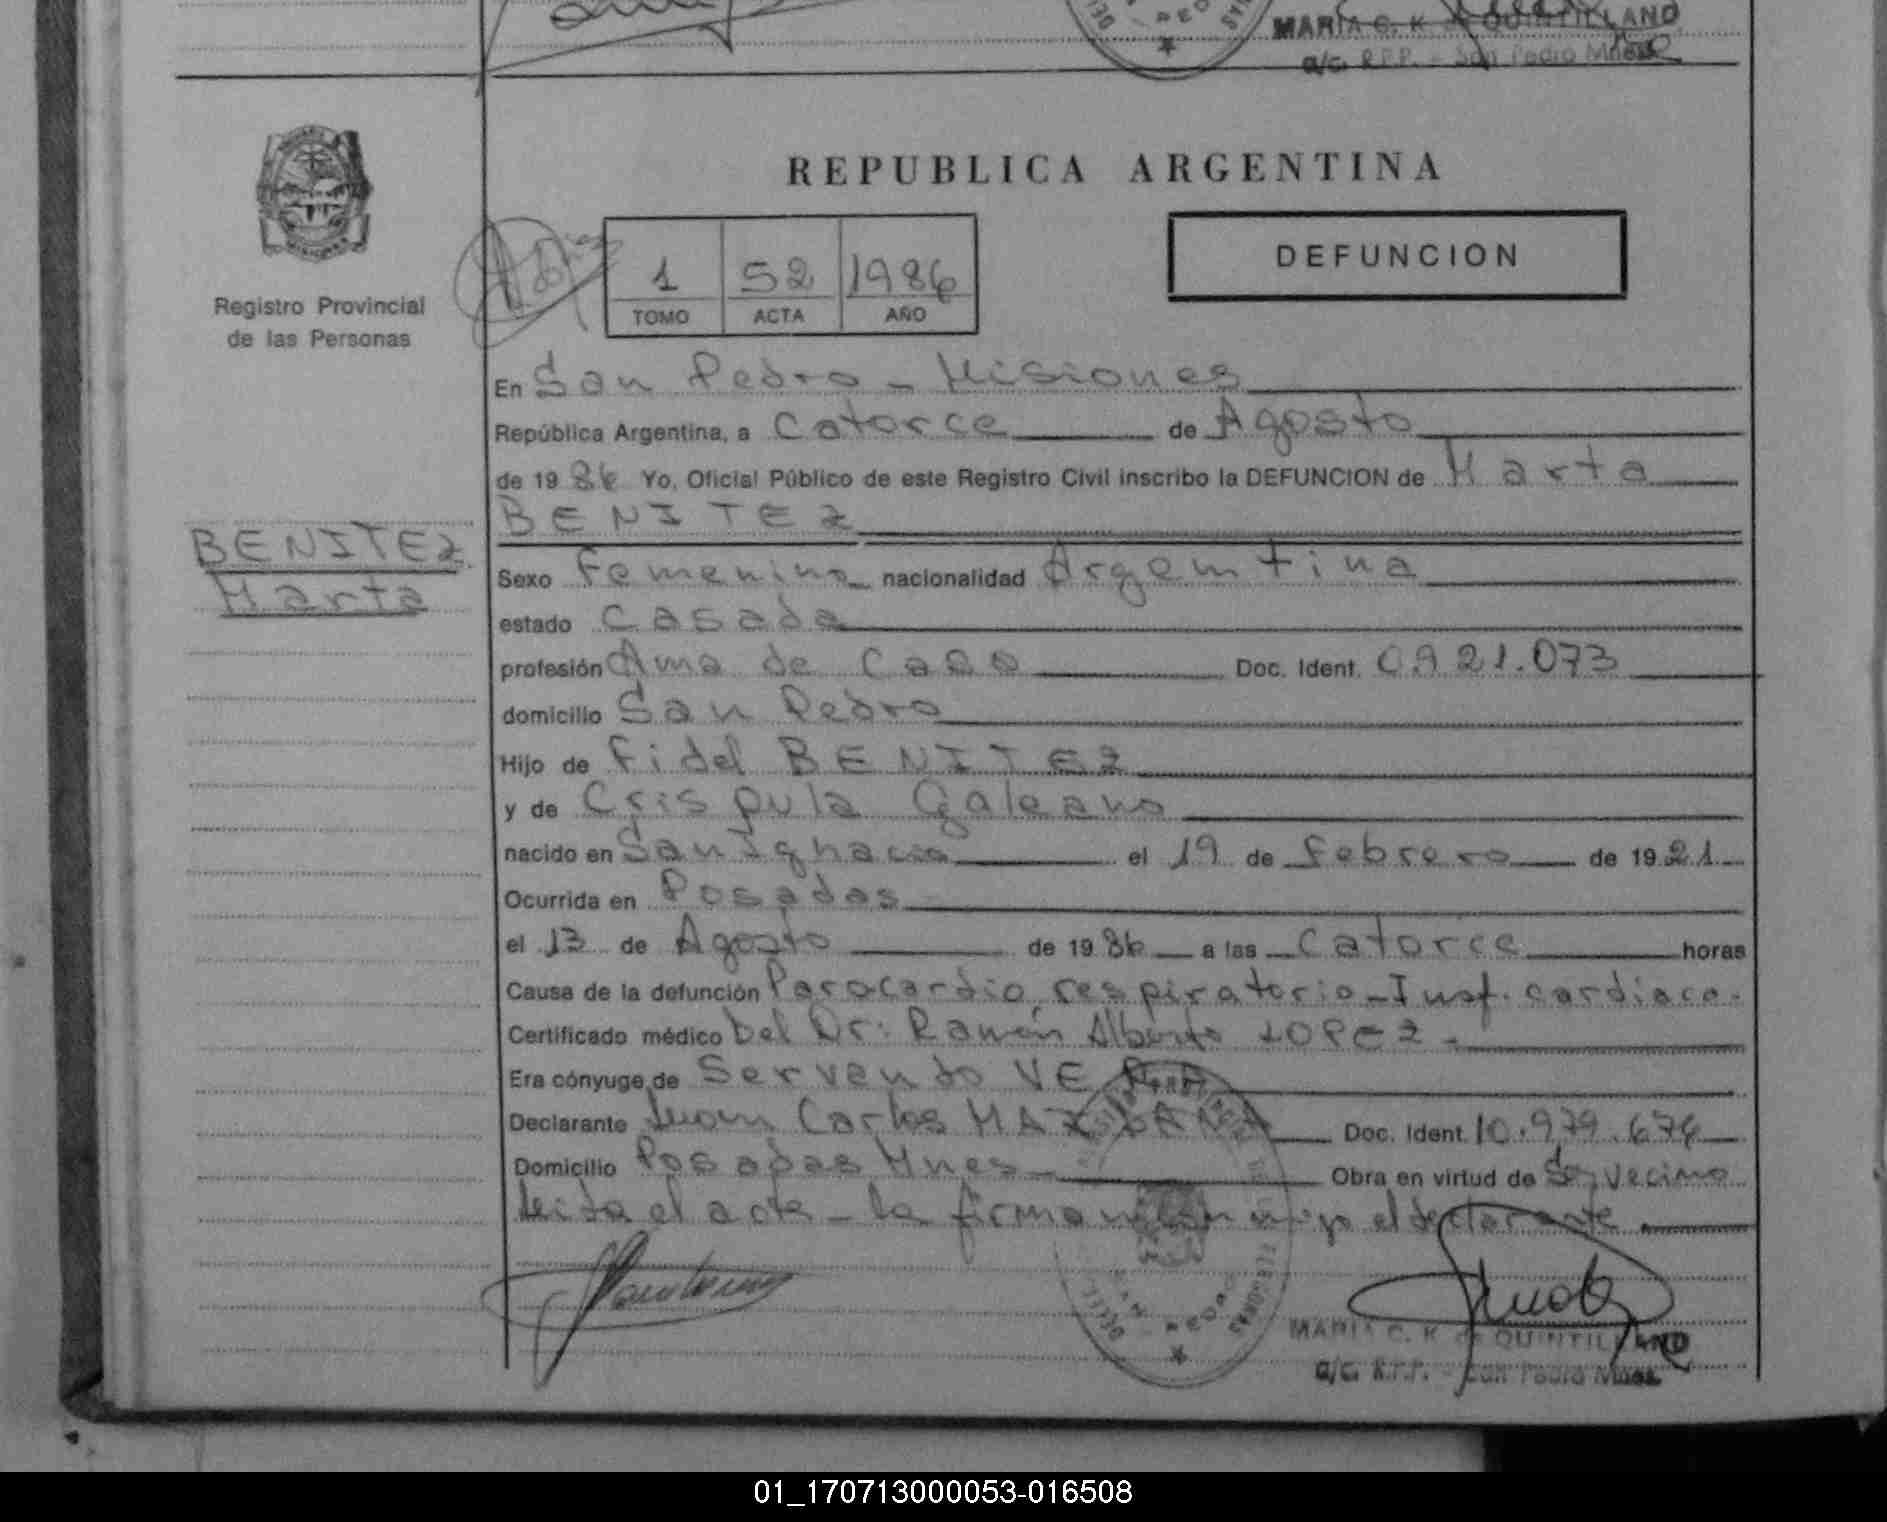 MARIA C. K. de QUINTILLANO
a/c. R.P.P. - San Pedro Mnes.
Registro Provincial
de las Personas
REPUBLICA ARGENTINA
DEFUNCION
1 52 1986
TOMO ACTA AÑO
En San Pedro - Misiones
República Argentina, a Catorce de Agosto
de 1986 Yo, Oficial Público de este Registro Civil inscribo la DEFUNCION de Marta
BENITEZ
BENITEZ
Marta
Sexo Femenino nacionalidad Argentina
estado Casada
profesión Ama de Casa Doc. Ident. 0.921.073
domicilio San Pedro
Hijo de Fidel BENITEZ
y de Crispula Galeano
nacido en San Ignacio el 19 de Febrero de 1921
Ocurrida en Posadas
el 13 de Agosto de 1986 a las Catorce horas
Causa de la defunción Parocardio respiratorio - Insf. cardiaca.
Certificado médico Del Dr: Ramón Alberto LOPEZ -
Era cónyuge de Servando VERA
Declarante Juan Carlos Doc. Ident. 10.979.676
Domicilio Posadas Mnes Obra en virtud de Ser vecino
Leida el acta - la firma conmigo el declarante
MARIA C. K. de QUINTILLANO
a/c. R.P.P. - San Pedro Mnes.
01_170713000053-016508